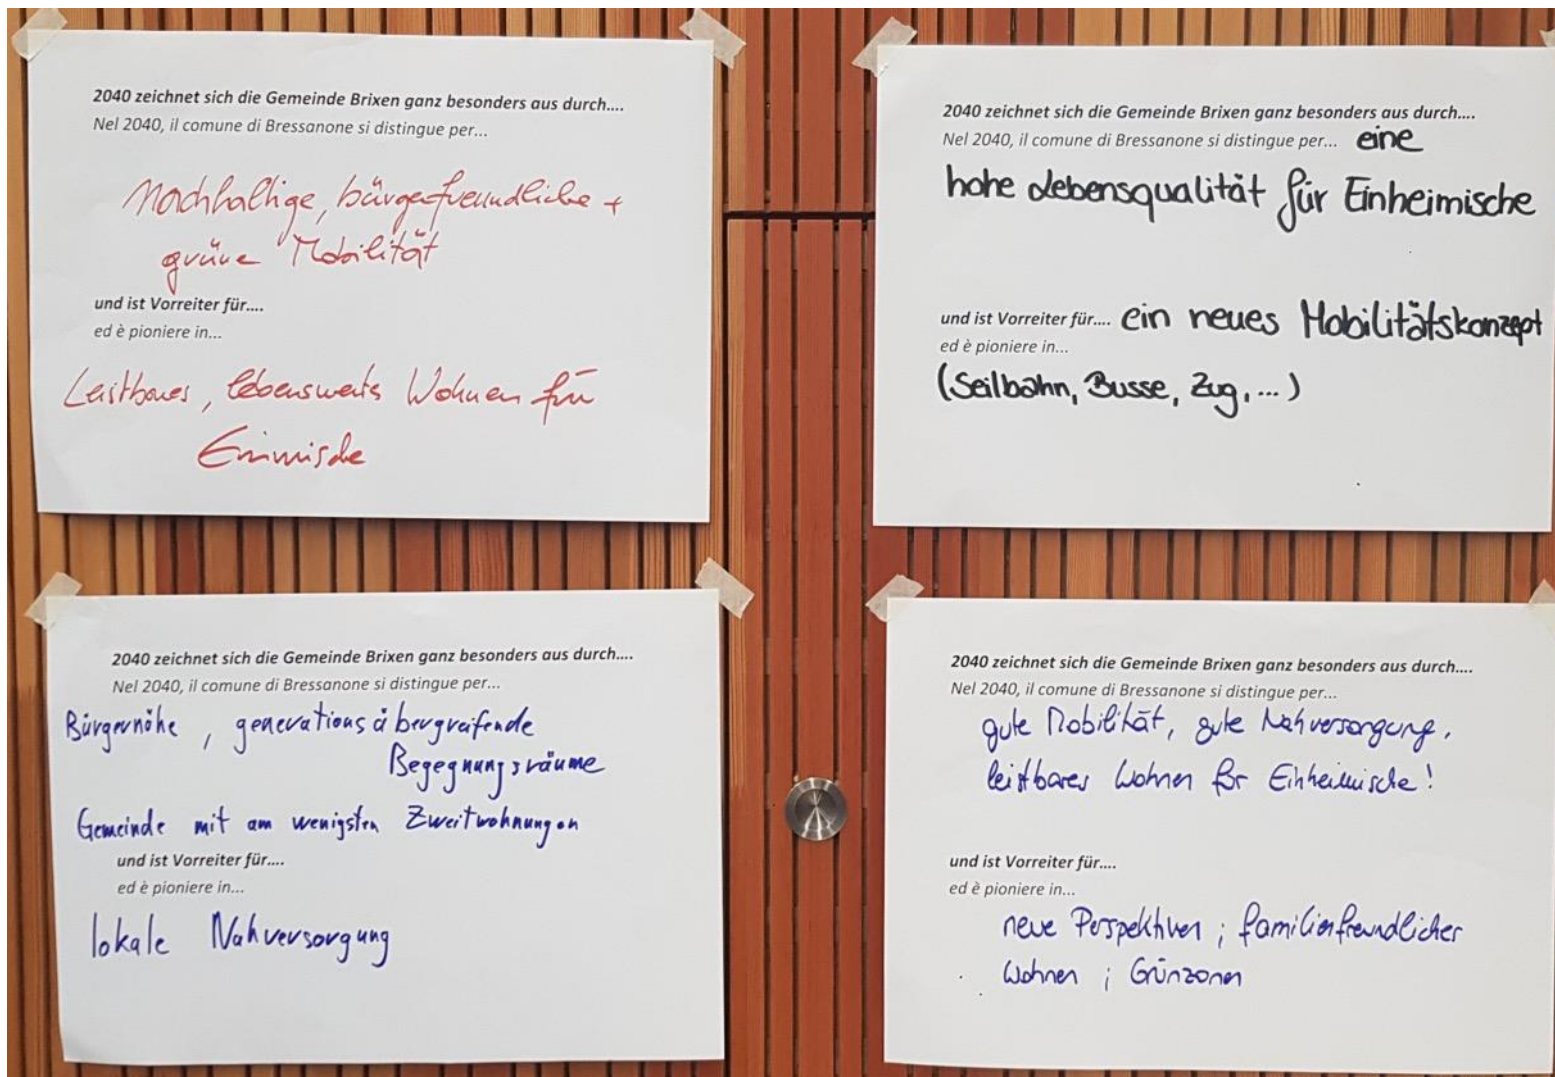 2040 zeichnet sich die Gemeinde Brixen ganz besonders aus durch....
Nel 2040, il comune di Bressanone si distingue per...
Nachhaltige, bürgerfreundliche +
grüne Mobilität
und ist Vorreiter für....
ed è pioniere in...
Leistbares, lebenswertes Wohnen für
2040 zeichnet sich die Gemeinde Brixen ganz besonders aus durch....
Nel 2040, il comune di Bressanone si distingue per... eine
hohe Lebensqualität für Einheimische
und ist Vorreiter für.... ein neues Mobilitätskonzept
ed è pioniere in...
(Seilbahn, Busse, Zug, ...)
2040 zeichnet sich die Gemeinde Brixen ganz besonders aus durch....
Nel 2040, il comune di Bressanone si distingue per...
Bürgernähe, generationsübergreifende
Begegnungsräume
Gemeinde mit am wenigsten Zweitwohnungen
und ist Vorreiter für....
ed è pioniere in...
lokale Nahversorgung
2040 zeichnet sich die Gemeinde Brixen ganz besonders aus durch....
Nel 2040, il comune di Bressanone si distingue per...
gute Mobilität, gute Nahversorgung,
leistbares Wohnen für Einheimische!
und ist Vorreiter für....
ed è pioniere in...
neue Perspektiven; familienfreundlicher
Wohnen; Grünzonen